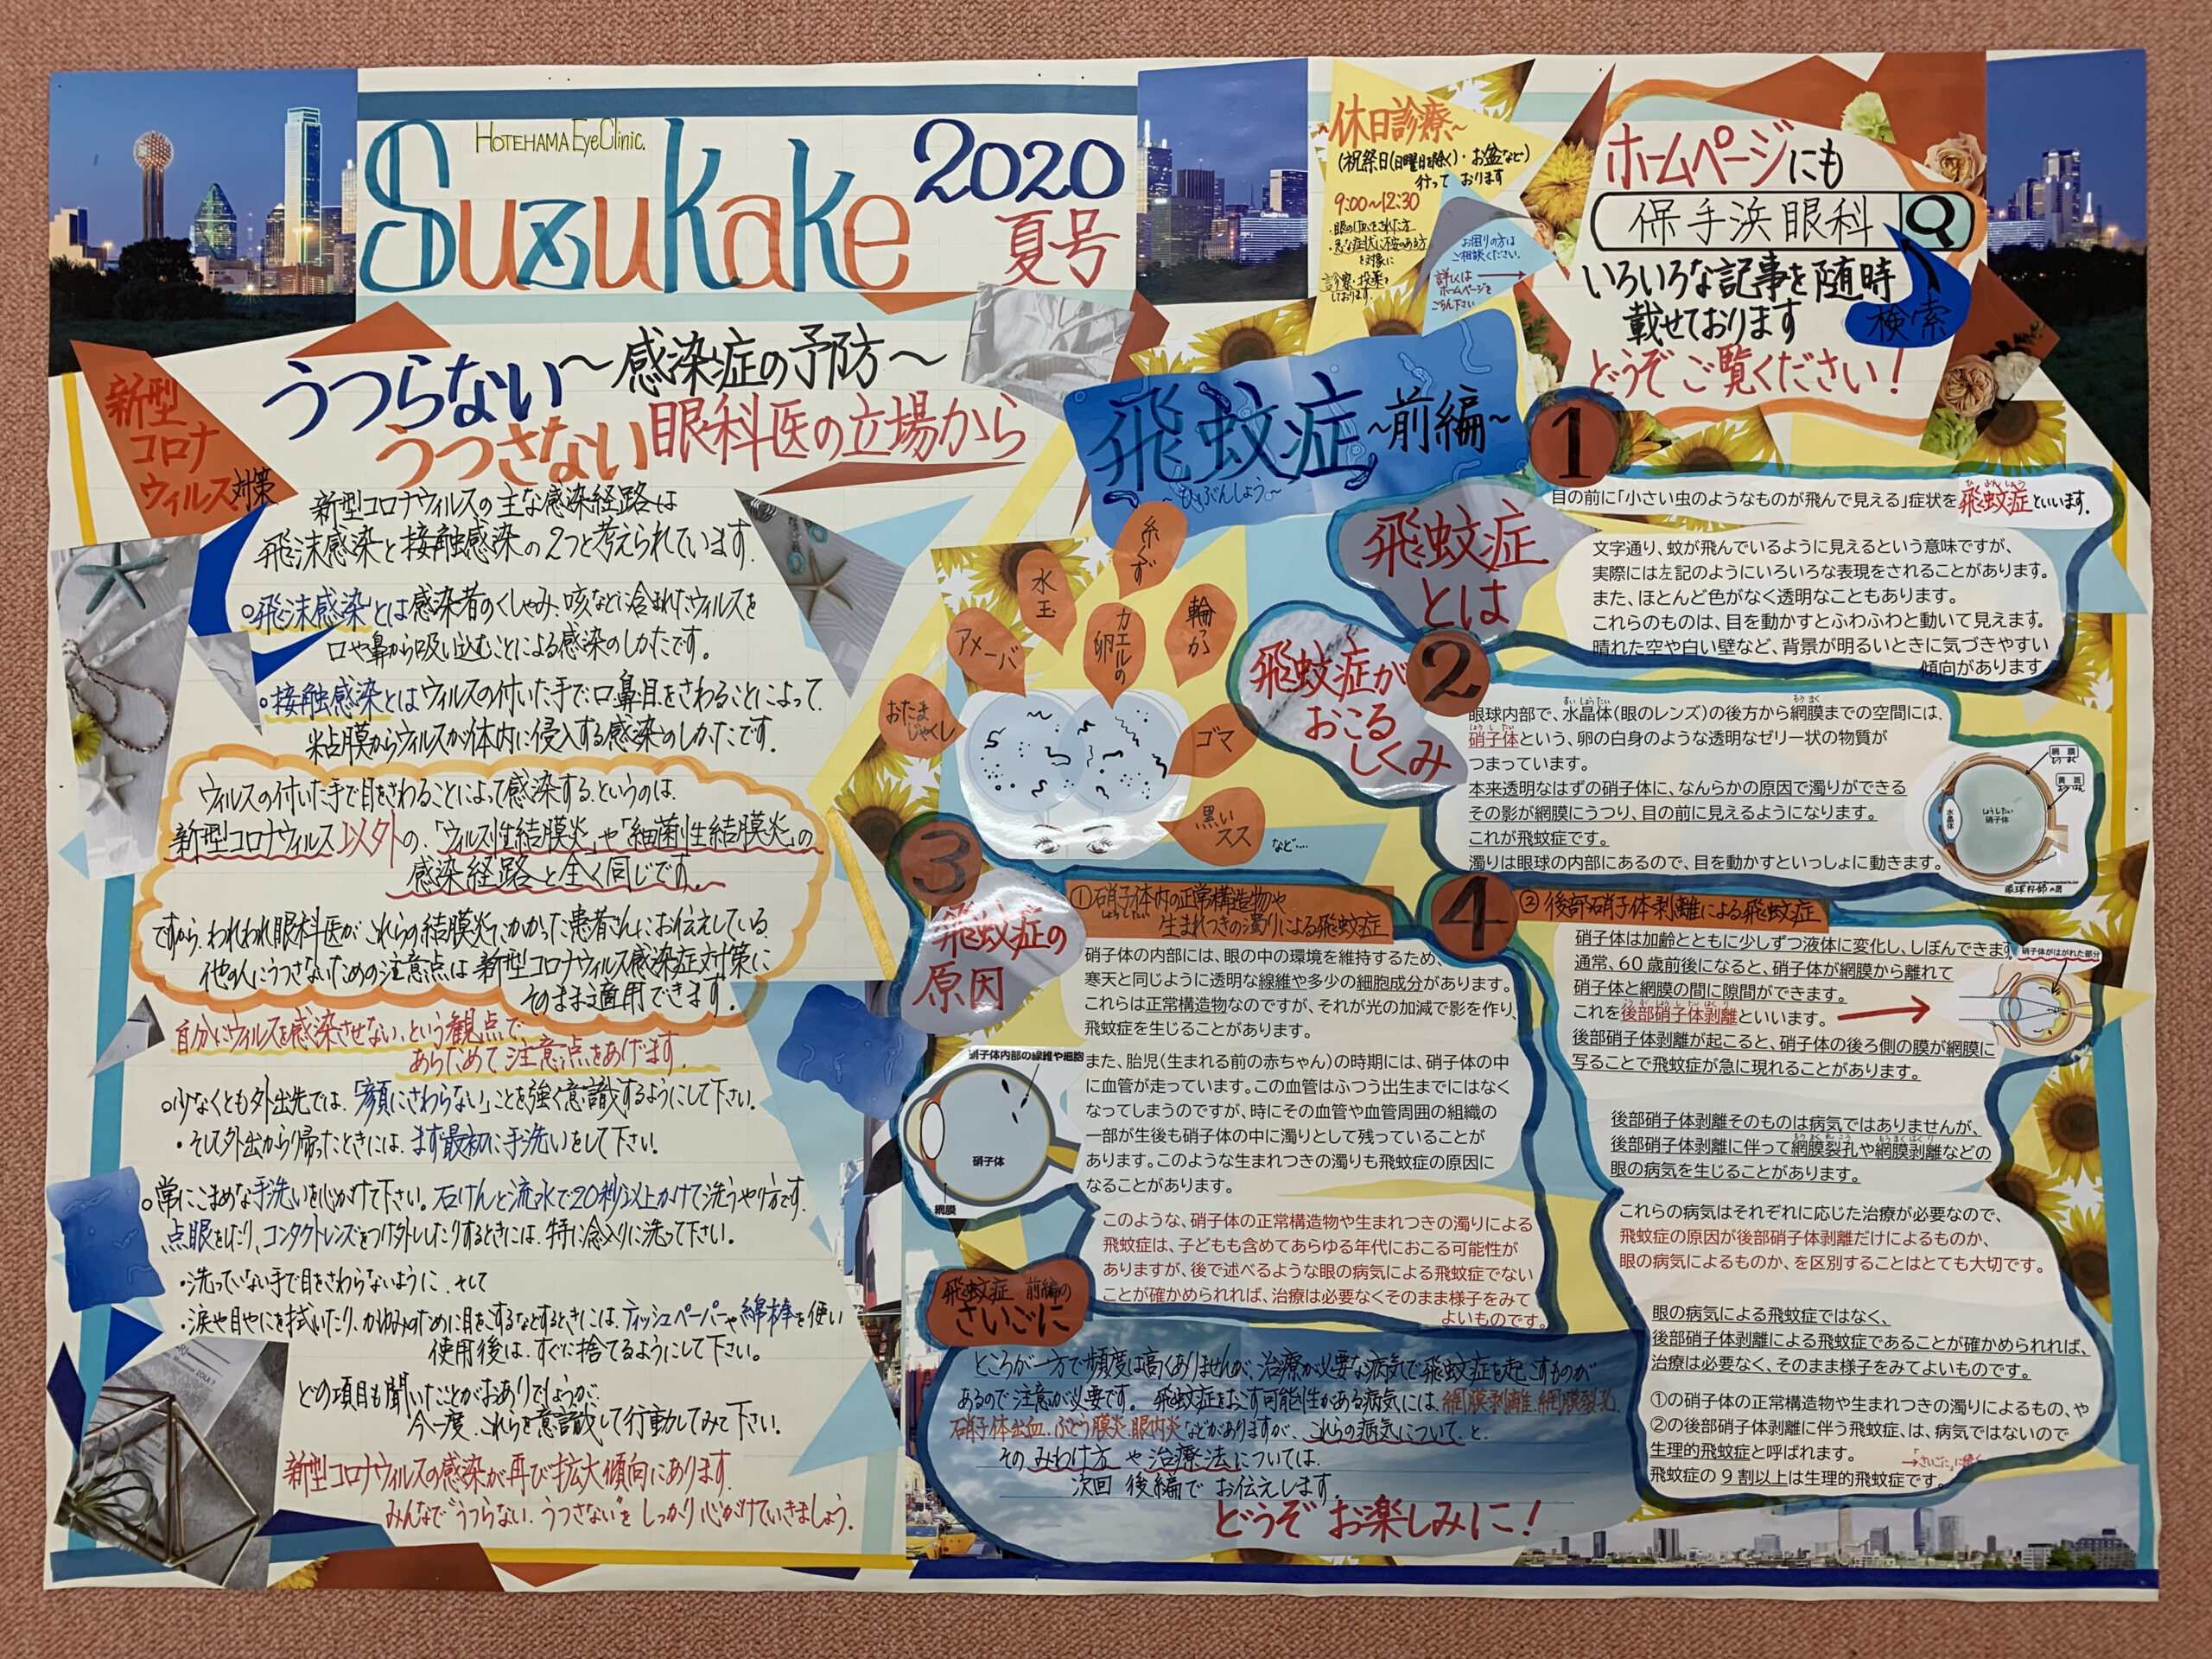 HOTEHAMA EyeClinic.
Suzukake
2020
夏号
休日診療~
(祝祭日(日曜日を除く)・お盆など)
行って おります
9:00~12:30
・眼のけがをされた方
・急な症状に不安のある方
を対象に
診察・投薬を
しております。
お困りの方は
ご相談ください。
詳しくは
ホームページを
ごらん下さい
ホームページにも
保手浜眼科
検索
いろいろな記事を随時
載せております
どうぞご覧ください!
新型
コロナ
ウィルス対策
うつらない~感染症の予防~
うつさない眼科医の立場から
新型コロナウィルスの主な感染経路は
飛沫感染と接触感染の2つと考えられています。
○飛沫感染とは感染者のくしゃみ、咳などに含まれたウィルスを
口や鼻から吸い込むことによる感染のしかたです。
○接触感染とはウィルスの付いた手で口、鼻、目をさわることによって、
粘膜からウィルスが体内に侵入する感染のしかたです。
ウィルスの付いた手で目をさわることによって感染する、というのは、
新型コロナウィルス以外の、「ウィルス性結膜炎」や「細菌性結膜炎」の
感染経路と全く同じです。
ですから、われわれ眼科医がこれらの結膜炎にかかった患者さんにお伝えしている、
他の人にうつさないための注意点は新型コロナウィルス感染症対策に
そのまま適用できます。
自分にウィルスを感染させない、という観点で、
あらためて注意点をあげます。
○少なくとも外出先では、「顔にさわらない」ことを強く意識するようにして下さい。
・そして外出から帰ったときには、まず最初に手洗いをして下さい。
○常にこまめな手洗いを心がけて下さい。石けんと流水で20秒以上かけて洗うやり方です。
点眼をしたり、コンタクトレンズをつけ外ししたりするときには、特に念入りに洗って下さい。
・洗っていない手で目をさわらないように、そして
・涙や目やにを拭いたり、かゆみのために目をこするなどするときには、ティッシュペーパーや綿棒を使い
使用後は、すぐに捨てるようにして下さい。
どの項目も聞いたことがおありでしょうが、
今一度、これらを意識して行動してみて下さい。
新型コロナウィルスの感染が再び拡大傾向にあります。
みんなで"うつらない、うつさない"を しっかり心がけていきましょう。
飛蚊症~前編~
~ひぶんしょう~
糸くず
水玉
カエルの卵
輪っか
アメーバ
おたまじゃくし
ゴマ
黒いスス
など….
1
飛蚊症
とは
目の前に「小さい虫のようなものが飛んで見える」症状を飛蚊症といいます。
ひぶんしょう
文字通り、蚊が飛んでいるように見えるという意味ですが、
実際には左記のようにいろいろな表現をされることがあります。
また、ほとんど色がなく透明なこともあります。
これらのものは、目を動かすとふわふわと動いて見えます。
晴れた空や白い壁など、背景が明るいときに気づきやすい
傾向があります。
2
飛蚊症が
おこる
しくみ
すいしょうたい
もうまく
眼球内部で、水晶体(眼のレンズ)の後方から網膜までの空間には、
しょうしたい
硝子体という、卵の白身のような透明なゼリー状の物質が
つまっています。
本来透明なはずの硝子体に、なんらかの原因で濁りができる
その影が網膜にうつり、目の前に見えるようになります。
これが飛蚊症です。
濁りは眼球の内部にあるので、目を動かすといっしょに動きます。
網膜
黄斑
水晶体
しょうしたい
硝子体
眼球内部の図
3
飛蚊症の
原因
①硝子体内の正常構造物や
しょうしたい
生まれつきの濁りによる飛蚊症
硝子体の内部には、眼の中の環境を維持するため、
寒天と同じように透明な線維や多少の細胞成分があります。
これらは正常構造物なのですが、それが光の加減で影を作り、
飛蚊症を生じることがあります。
硝子体内部の線維や細胞
硝子体
網膜
また、胎児(生まれる前の赤ちゃん)の時期には、硝子体の中
に血管が走っています。この血管はふつう出生までにはなく
なってしまうのですが、時にその血管や血管周囲の組織の
一部が生後も硝子体の中に濁りとして残っていることが
あります。このような生まれつきの濁りも飛蚊症の原因に
なることがあります。
このような、硝子体の正常構造物や生まれつきの濁りによる
飛蚊症は、子どもも含めてあらゆる年代におこる可能性が
ありますが、後で述べるような眼の病気による飛蚊症でない
ことが確かめられれば、治療は必要なくそのまま様子をみて
よいものです。
4
②後部硝子体剥離による飛蚊症
硝子体は加齢とともに少しずつ液体に変化し、しぼんできます。
通常、60歳前後になると、硝子体が網膜から離れて
硝子体と網膜の間に隙間ができます。
こうぶしょうしたいはくり
これを後部硝子体剥離といいます。
後部硝子体剥離が起こると、硝子体の後ろ側の膜が網膜に
写ることで飛蚊症が急に現れることがあります。
硝子体がはがれた部分
後部硝子体剥離そのものは病気ではありませんが、
もうまくれっこう
もうまくはくり
後部硝子体剥離に伴って網膜裂孔や網膜剥離などの
眼の病気を生じることがあります。
これらの病気はそれぞれに応じた治療が必要なので、
飛蚊症の原因が後部硝子体剥離だけによるものか、
眼の病気によるものか、を区別することはとても大切です。
眼の病気による飛蚊症ではなく、
後部硝子体剥離による飛蚊症であることが確かめられれば、
治療は必要なく、そのまま様子をみてよいものです。
①の硝子体の正常構造物や生まれつきの濁りによるもの、や
②の後部硝子体剥離に伴う飛蚊症、は、病気ではないので
生理的飛蚊症と呼ばれます。
→「さいごに」に続く
飛蚊症の9割以上は生理的飛蚊症です。
飛蚊症 前編の
さいごに
ところが一方で頻度は高くありませんが、治療が必要な病気で飛蚊症を起こすものが
あるので注意が必要です。飛蚊症をおこす可能性がある病気には、網膜剥離、網膜裂孔、
硝子体出血、ぶどう膜炎、眼内炎などがありますが、これらの病気について、と、
そのみわけ方や治療法については、
次回 後編で お伝えします。
どうぞ お楽しみに!